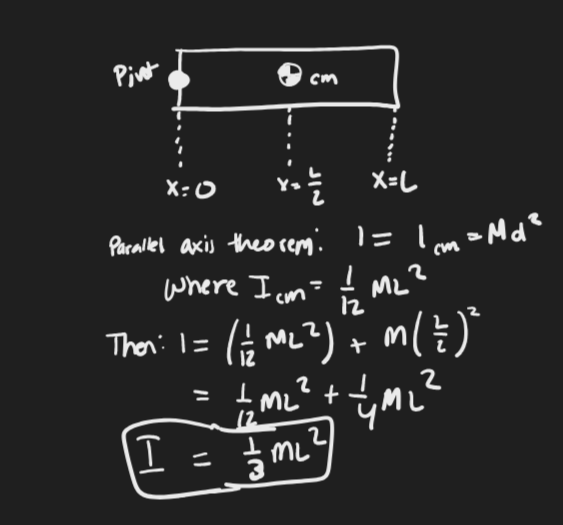 Pivot
cm
x=0 x=L/2 x=L
Parallel axis theorem: I = I_cm = Md²
where I_cm = 1/12 ML²
Then: I = (1/12 ML²) + M(L/2)²
= 1/12 ML² + 1/4 ML²
I = 1/3 ML²